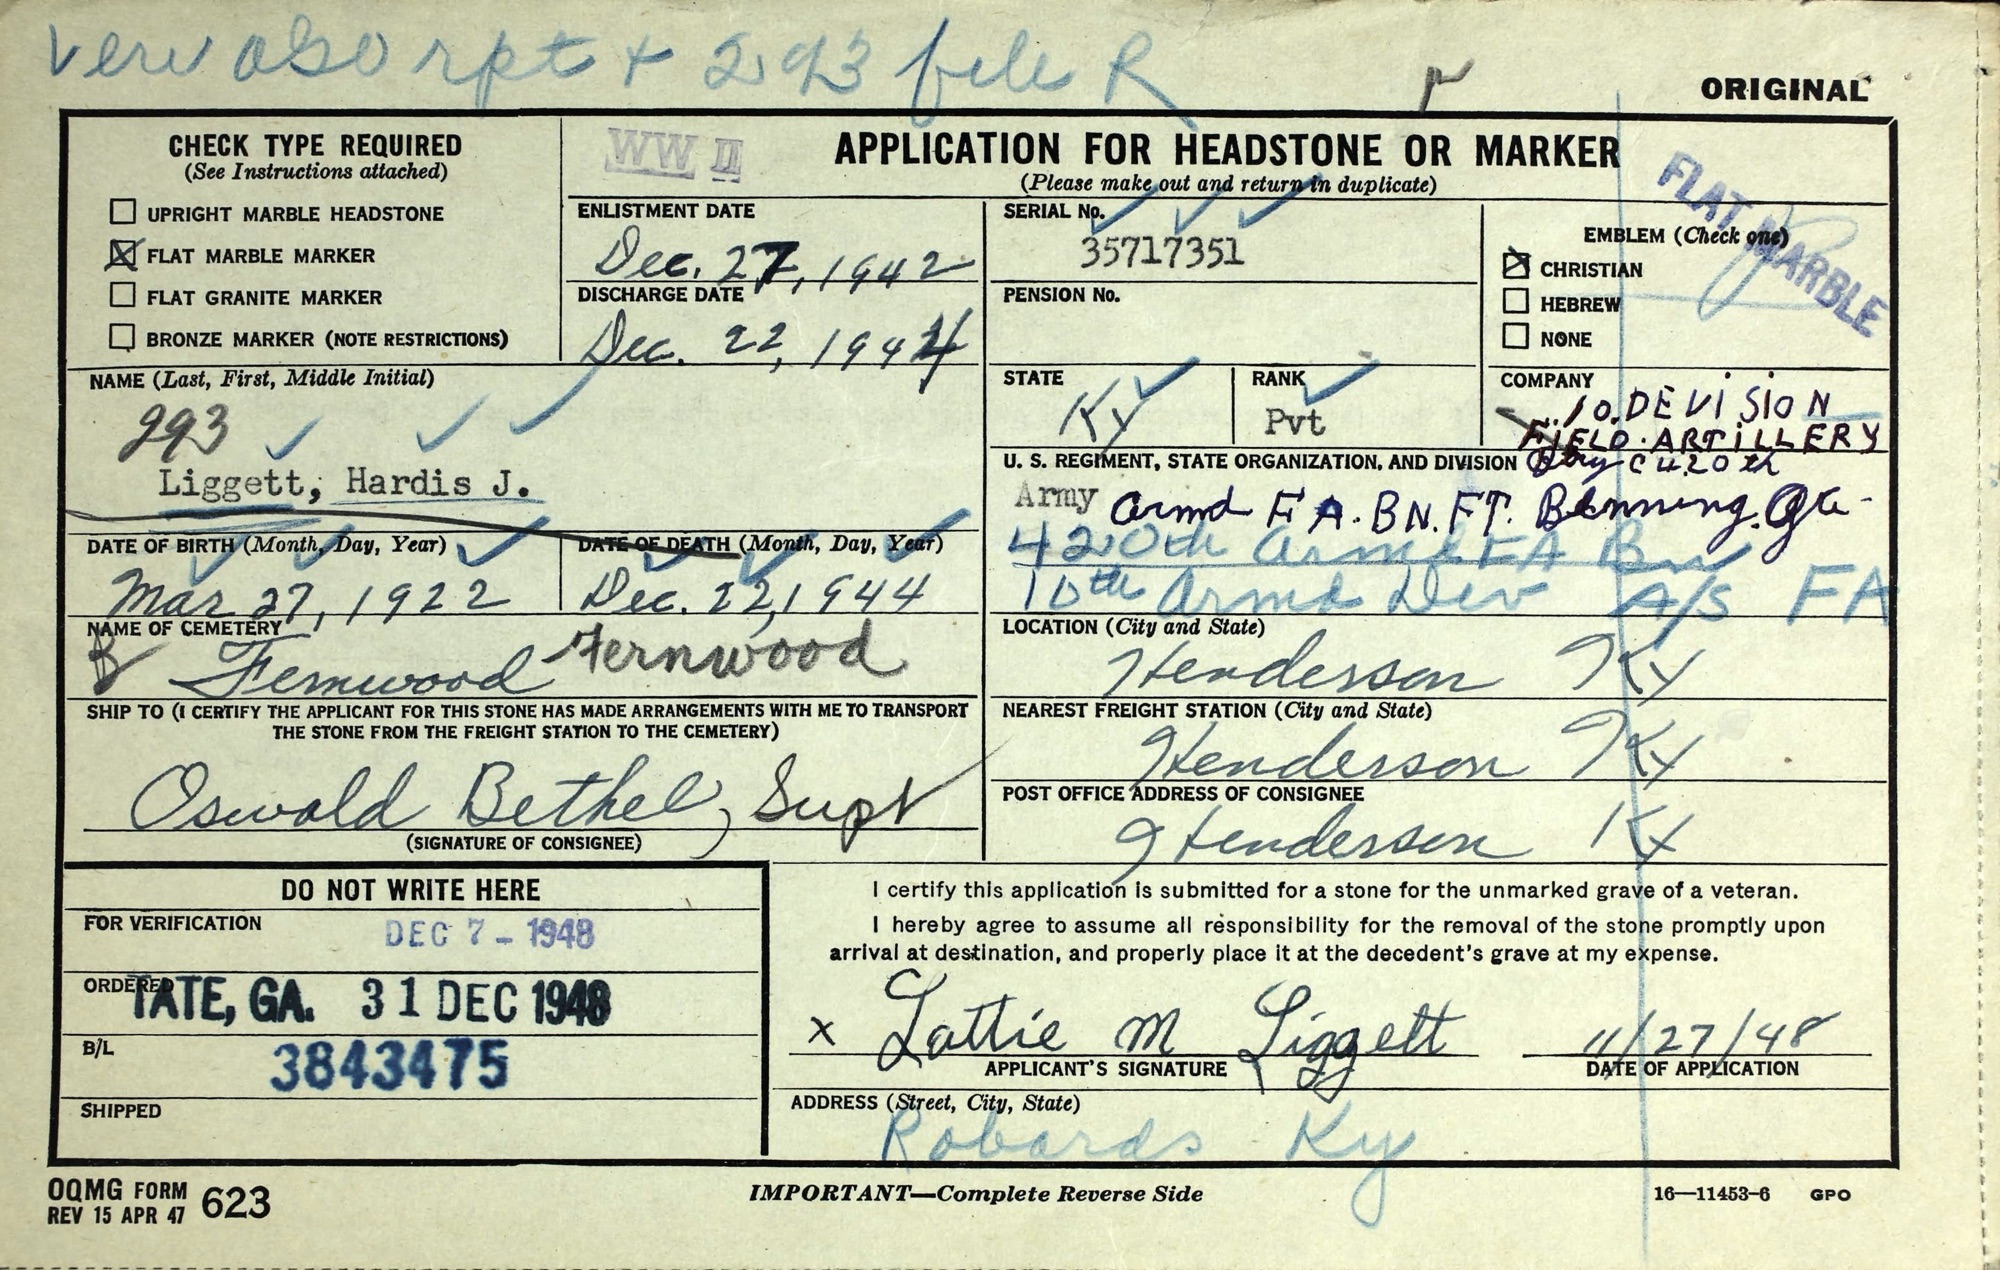 veri also rpt + 293 file R
ORIGINAL
CHECK TYPE REQUIRED
(See Instructions attached)
UPRIGHT MARBLE HEADSTONE
FLAT MARBLE MARKER
FLAT GRANITE MARKER
BRONZE MARKER (NOTE RESTRICTIONS)
WW II
APPLICATION FOR HEADSTONE OR MARKER
(Please make out and return in duplicate)
FLAT MARBLE
ENLISTMENT DATE
Dec. 27, 1942
DISCHARGE DATE
Dec. 22, 1944
SERIAL No.
35717351
PENSION No.
EMBLEM (Check one)
CHRISTIAN
HEBREW
NONE
NAME (Last, First, Middle Initial)
293
Liggett, Hardis J.
STATE
Ky
RANK
Pvt
COMPANY
10. DEVISION
FIELD. ARTILLERY
U. S. REGIMENT, STATE ORGANIZATION, AND DIVISION
Btry C 420th
Army Armd F A. BN. FT. Benning. Ga.
420th Armd FA Bn
10th Armd Div A/S FA
DATE OF BIRTH (Month, Day, Year)
Mar 27, 1922
DATE OF DEATH (Month, Day, Year)
Dec. 22, 1944
NAME OF CEMETERY
Fernwood Fernwood
LOCATION (City and State)
Henderson Ky
SHIP TO (I CERTIFY THE APPLICANT FOR THIS STONE HAS MADE ARRANGEMENTS WITH ME TO TRANSPORT
THE STONE FROM THE FREIGHT STATION TO THE CEMETERY)
Oswald Bethel, Supt
(SIGNATURE OF CONSIGNEE)
NEAREST FREIGHT STATION (City and State)
Henderson Ky
POST OFFICE ADDRESS OF CONSIGNEE
Henderson Ky
DO NOT WRITE HERE
FOR VERIFICATION
DEC 7 - 1948
ORDERED
TATE, GA. 31 DEC 1948
B/L
3843475
SHIPPED
I certify this application is submitted for a stone for the unmarked grave of a veteran.
I hereby agree to assume all responsibility for the removal of the stone promptly upon
arrival at destination, and properly place it at the decedent's grave at my expense.
x Lottie M Liggett 11/27/48
APPLICANT'S SIGNATURE DATE OF APPLICATION
ADDRESS (Street, City, State)
Robards Ky
OQMG FORM 623
REV 15 APR 47
IMPORTANT—Complete Reverse Side
16—11453-6 GPO